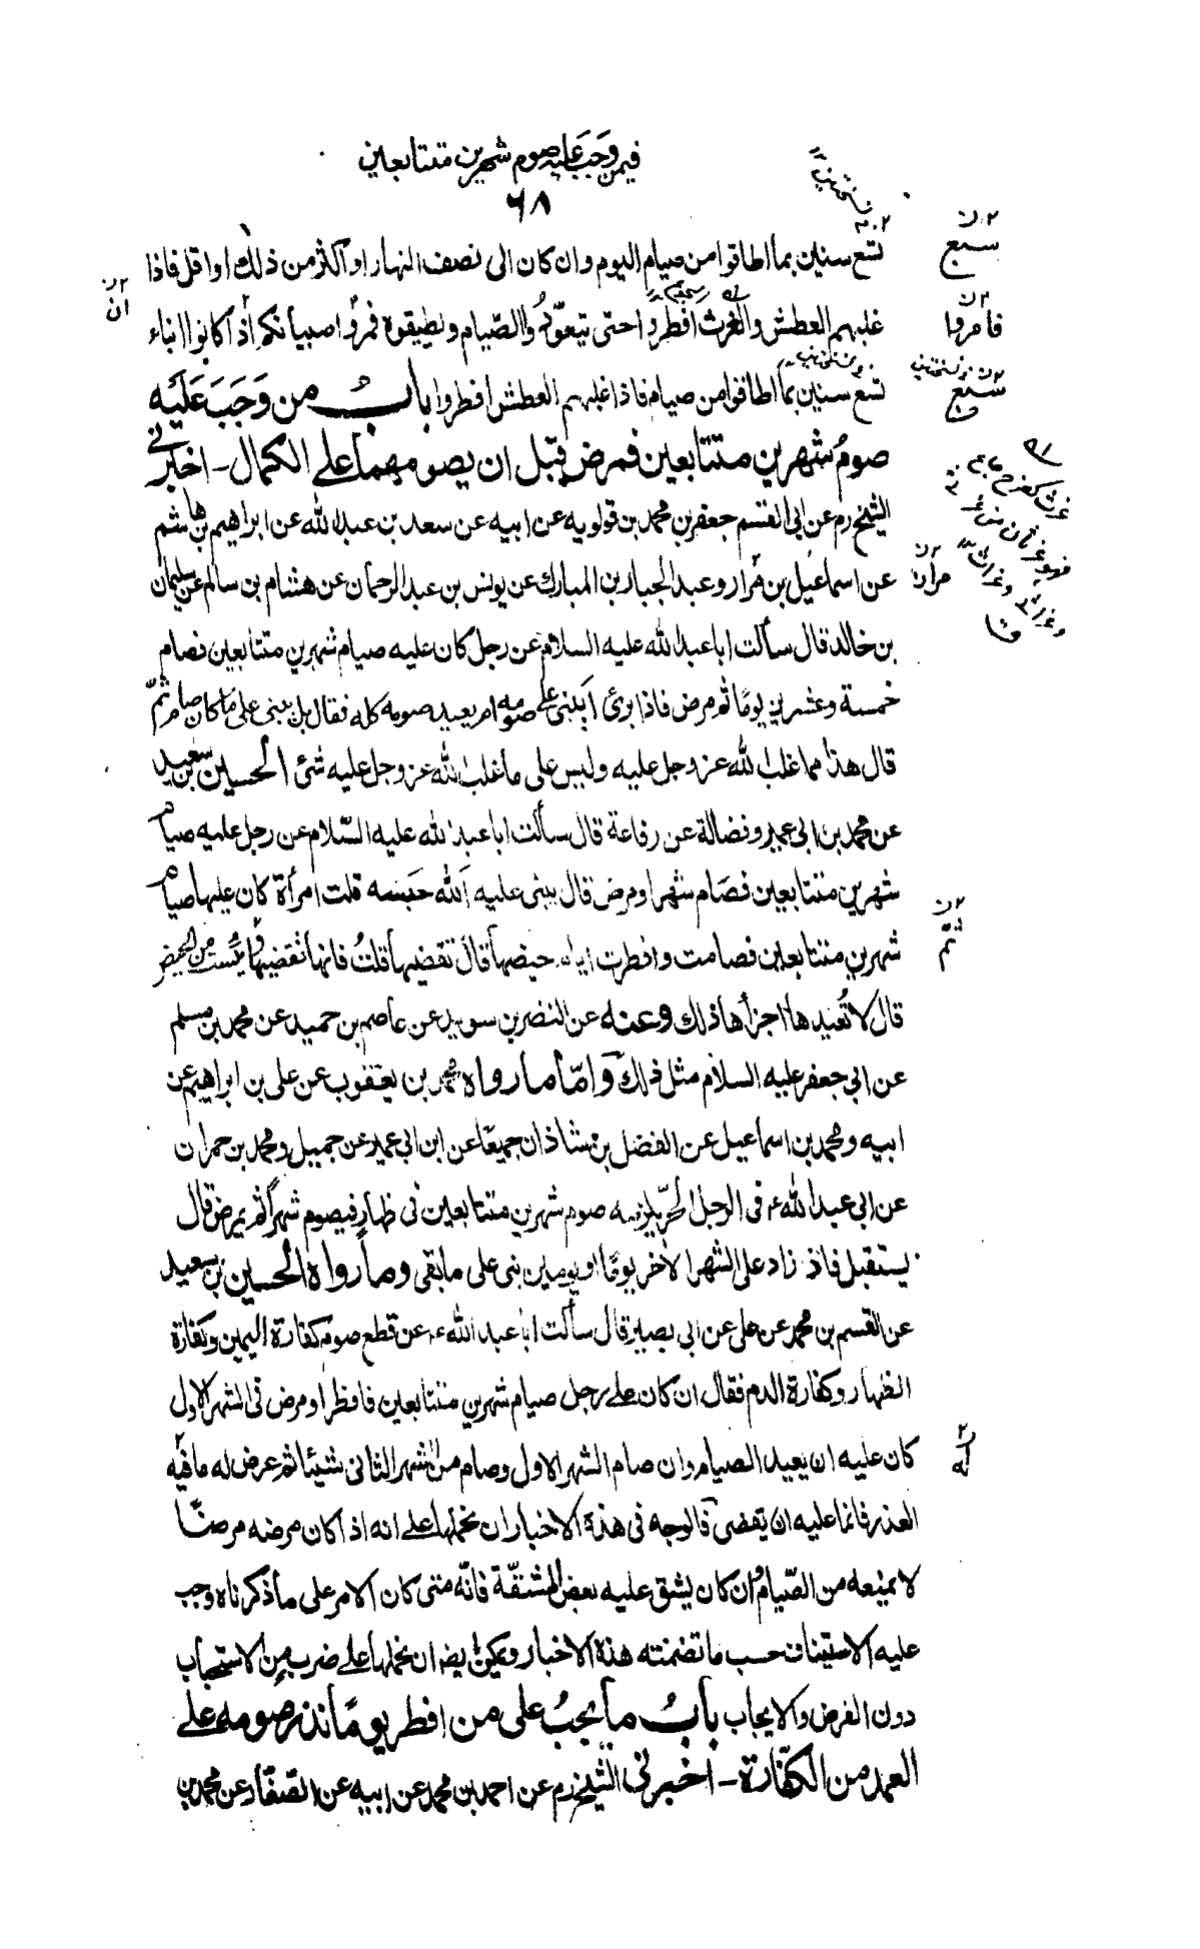 فيمن وجب عليه صوم شهرين متتابعين
٦٨
تسع سنين بما اطاقوا من صيام اليوم وان كان الى نصف النهار او اكثر من ذلك او اقل فاذا
غلبهم العطش والغرث افطروا حتى يتعوّدُوا الصّيام ويطيقوه فمروا صبيانكم اذا كانوا ابناء
تسع سنين بما اطاقوا من صيام فاذا غلبهم العطش افطروا بابُ من وَجَبَ عَلَيَه
صومُ شهرين متتابعين فمرض قبل ان يصومهما على الكمال - اخبرني
الشيخ رم عن ابى القسم جعفر بن محمد بن قولويه عن ابيه عن سعد بن عبد الله عن ابراهيم بن هاشم
عن اسماعيل بن مرار وعبد الجبار بن المبارك عن يونس بن عبد الرحمان عن هشام بن سالم عن سليمان
بن خالد قال سألت ابا عبد الله عليه السلام عن رجل كان عليه صيام شهرين متتابعين فصام
خمسة وعشرين يومًا ثم مرض فاذا برئ أيبنى على صومه ام يعيد صومه كله فقال بل يبنى على ما كان صام ثمّ
قال هذا مما غلب الله عز وجل عليه وليس على ما غلب الله عز وجل عليه شئ الحسين بن سعيد
عن محمد بن ابى عمير وفضالة عن رفاعة قال سألت ابا عبد الله عليه السّلام عن رجل عليه صيام
شهرين متتابعين فصَام شهرا ومرض قال يبنى عليه الله حَبَسه قلت امرأة كان عليها صيام
شهرين متتابعين فصامت وافطرت ايام حيضها قال تقضيها قلتُ فانها تقضيها ويئست من الحيض
قال لا تُعيدها اجزأها ذلك وعنه عن النضر بن سويد عن عاصم بن حميد عن محمد بن مسلم
عن ابى جعفر عليه السلام مثل ذلك وَامّا ما رواه محمد بن يعقوب عن على بن ابراهيم عن
ابيه ومحمد بن اسماعيل عن الفضل بن شاذان جميعًا عن ابن ابى عمير عن جميل ومحمد بن حمران
عن ابى عبد الله ع فى الرجل الحرّ يلزمه صوم شهرين متتابعين فى ظهار فيصوم شهرًا ثم يمرض قال
يستقبل فاذ زاد على الشهر الآخر يومًا او يومين بنى على ما بقى وما رواه الحسين بن سعيد
عن القسم بن محمد عن على عن ابى بصير قال سألت ابا عبد الله ع عن قطع صوم كفارة اليمين وكفارة
الظهار وكفارة الدم فقال ان كان على رجل صيام شهرين متتابعين فافطر او مرض فى الشهر الاول
كان عليه ان يعيد الصيام وان صام الشهر الاول وصام من الشهر الثانى شيئا ثم عرض له ما فيه
العذر فانما عليه ان يقضى فالوجه فى هذة الاخبار ان نحملها على انه اذا كان مرضه مرضًا
لا يمنعه من الصّيام وان كان يشق عليه بعض المشقّة فانّه متى كان الامر على ما ذكرناه وجب
عليه الاستيناف حسب ما تضمنته هذة الاخبار ويمكن ايضا ان نحملها على ضرب من الاستحباب
دون الفرض والايجاب بابُ ما يجبُ على من افطر يومًا نذر صومه على
العمد من الكفّارة - اخبرنى الشيخ رم عن احمد بن محمد عن ابيه عن الصفّار عن محمد بن
سبع
فامروا
سبع
مرار
ثمّ
له
ان